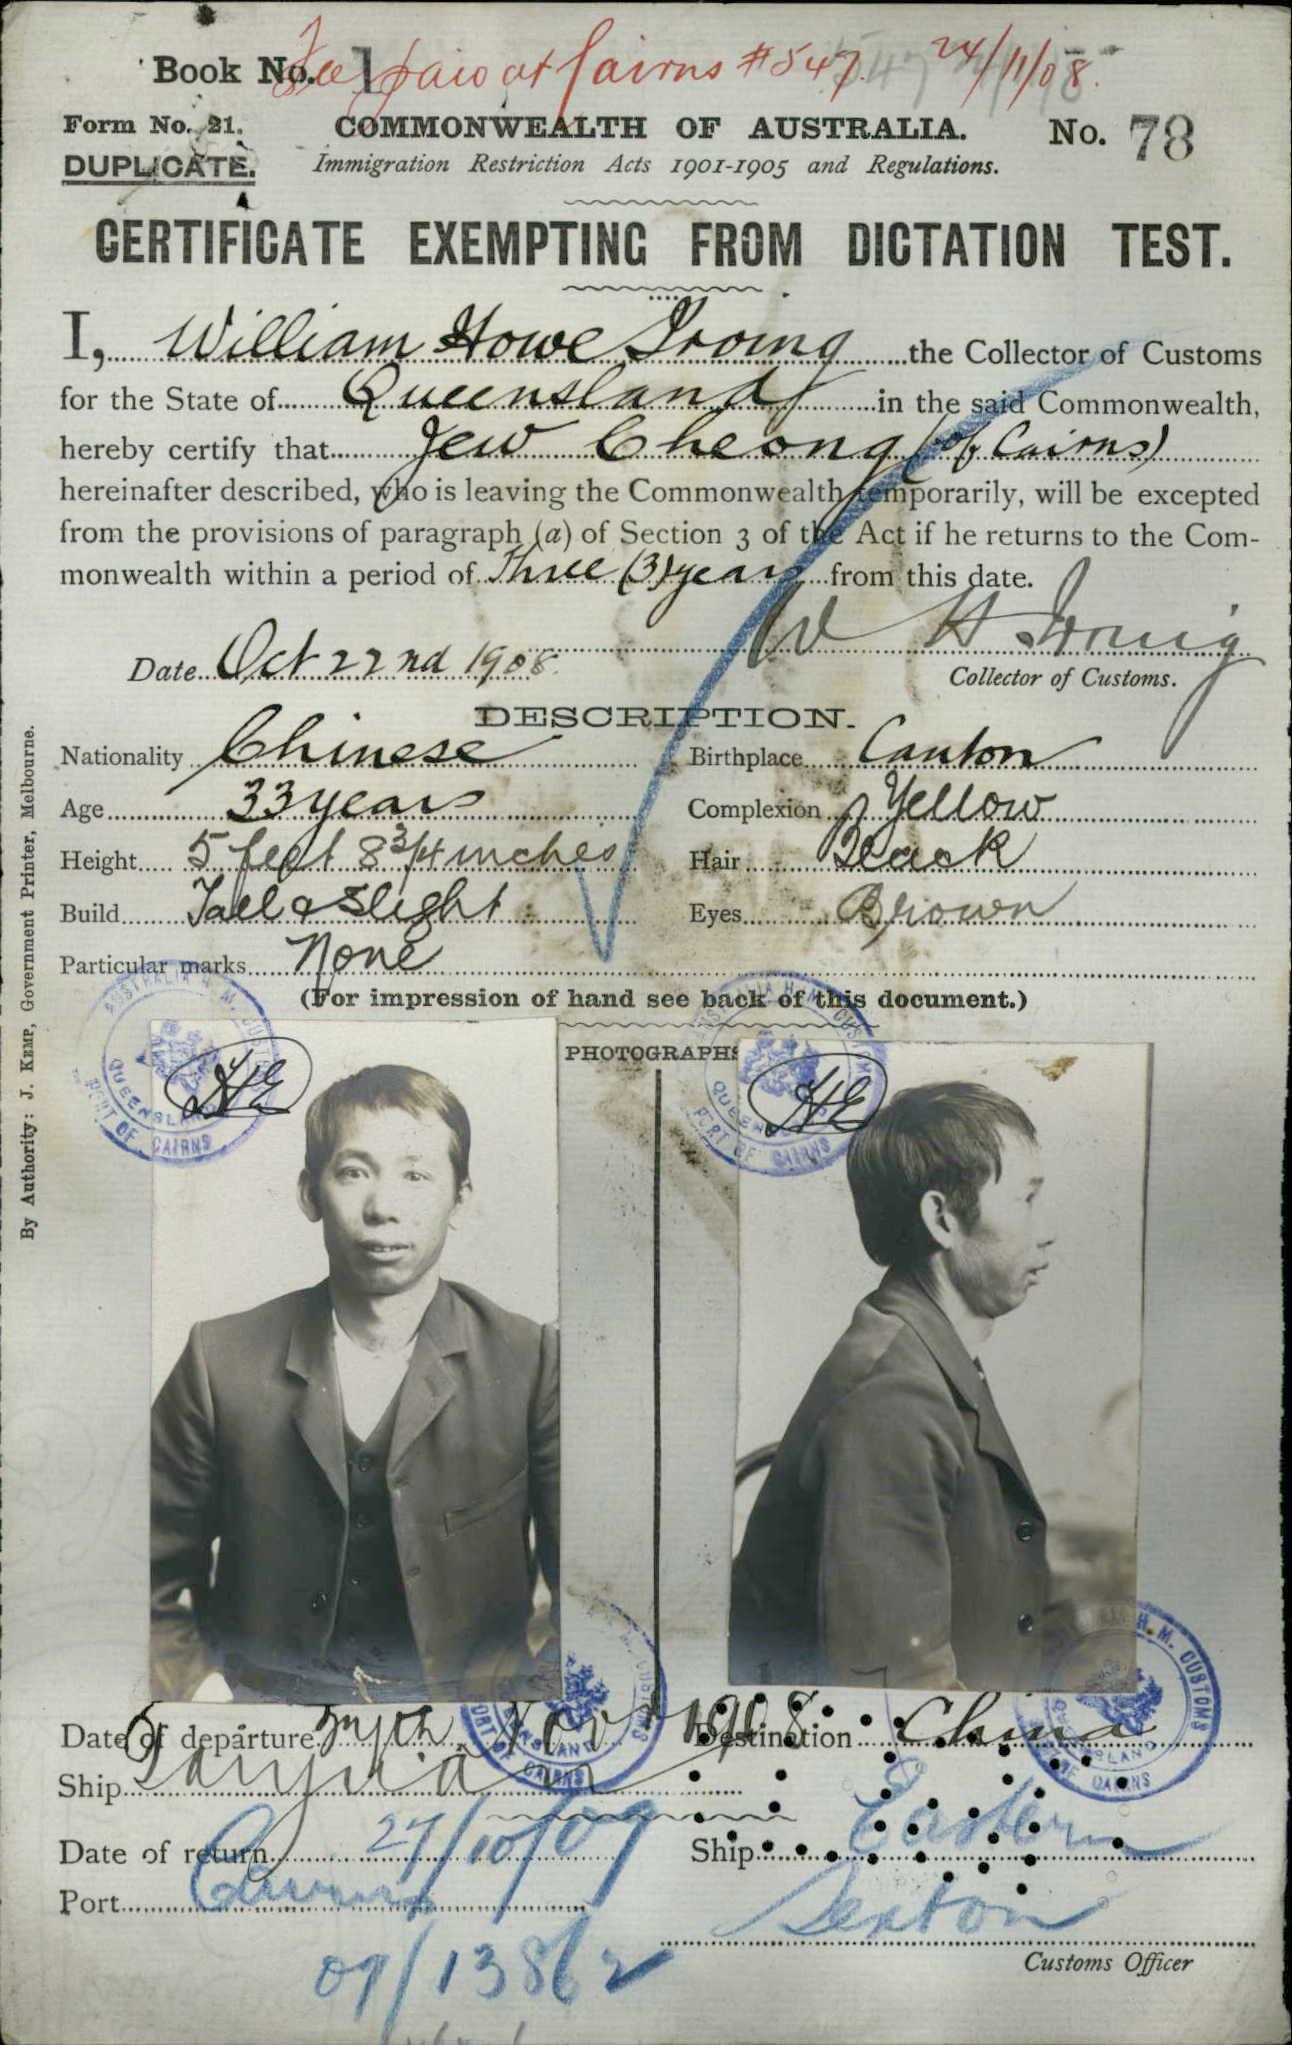 Fee paid at Cairns #547. 24/11/08.
Book No. 1
Form No. 21. COMMONWEALTH OF AUSTRALIA. No. 78
DUPLICATE. Immigration Restriction Acts 1901-1905 and Regulations.
CERTIFICATE EXEMPTING FROM DICTATION TEST.
I, William Howe Irving the Collector of Customs
for the State of Queensland in the said Commonwealth,
hereby certify that Jew Cheong (of Cairns)
hereinafter described, who is leaving the Commonwealth temporarily, will be excepted
from the provisions of paragraph (a) of Section 3 of the Act if he returns to the Com-
monwealth within a period of Three (3) years from this date.
W H Irving
Date Oct 22nd 1908. Collector of Customs.
DESCRIPTION.
Nationality Chinese Birthplace Canton
Age 33 years Complexion Yellow
Height 5 feet 8 3/4 inches Hair Black
Build Tall & Slight Eyes Brown
Particular marks None
(For impression of hand see back of this document.)
PHOTOGRAPHS
AUSTRALIA H. M. CUSTOMS QUEENSLAND PORT OF CAIRNS
HE
AUSTRALIA H. M. CUSTOMS QUEENSLAND PORT OF CAIRNS
HE
By Authority: J. KEMP, Government Printer, Melbourne.
H. M. CUSTOMS QUEENSLAND PORT OF CAIRNS
H. M. CUSTOMS QUEENSLAND PORT OF CAIRNS
Date of departure Novr 1908 Destination China
Ship
Date of return 27/10/09 Ship Eastern
Port Cairns Sexton
Customs Officer
09/13862